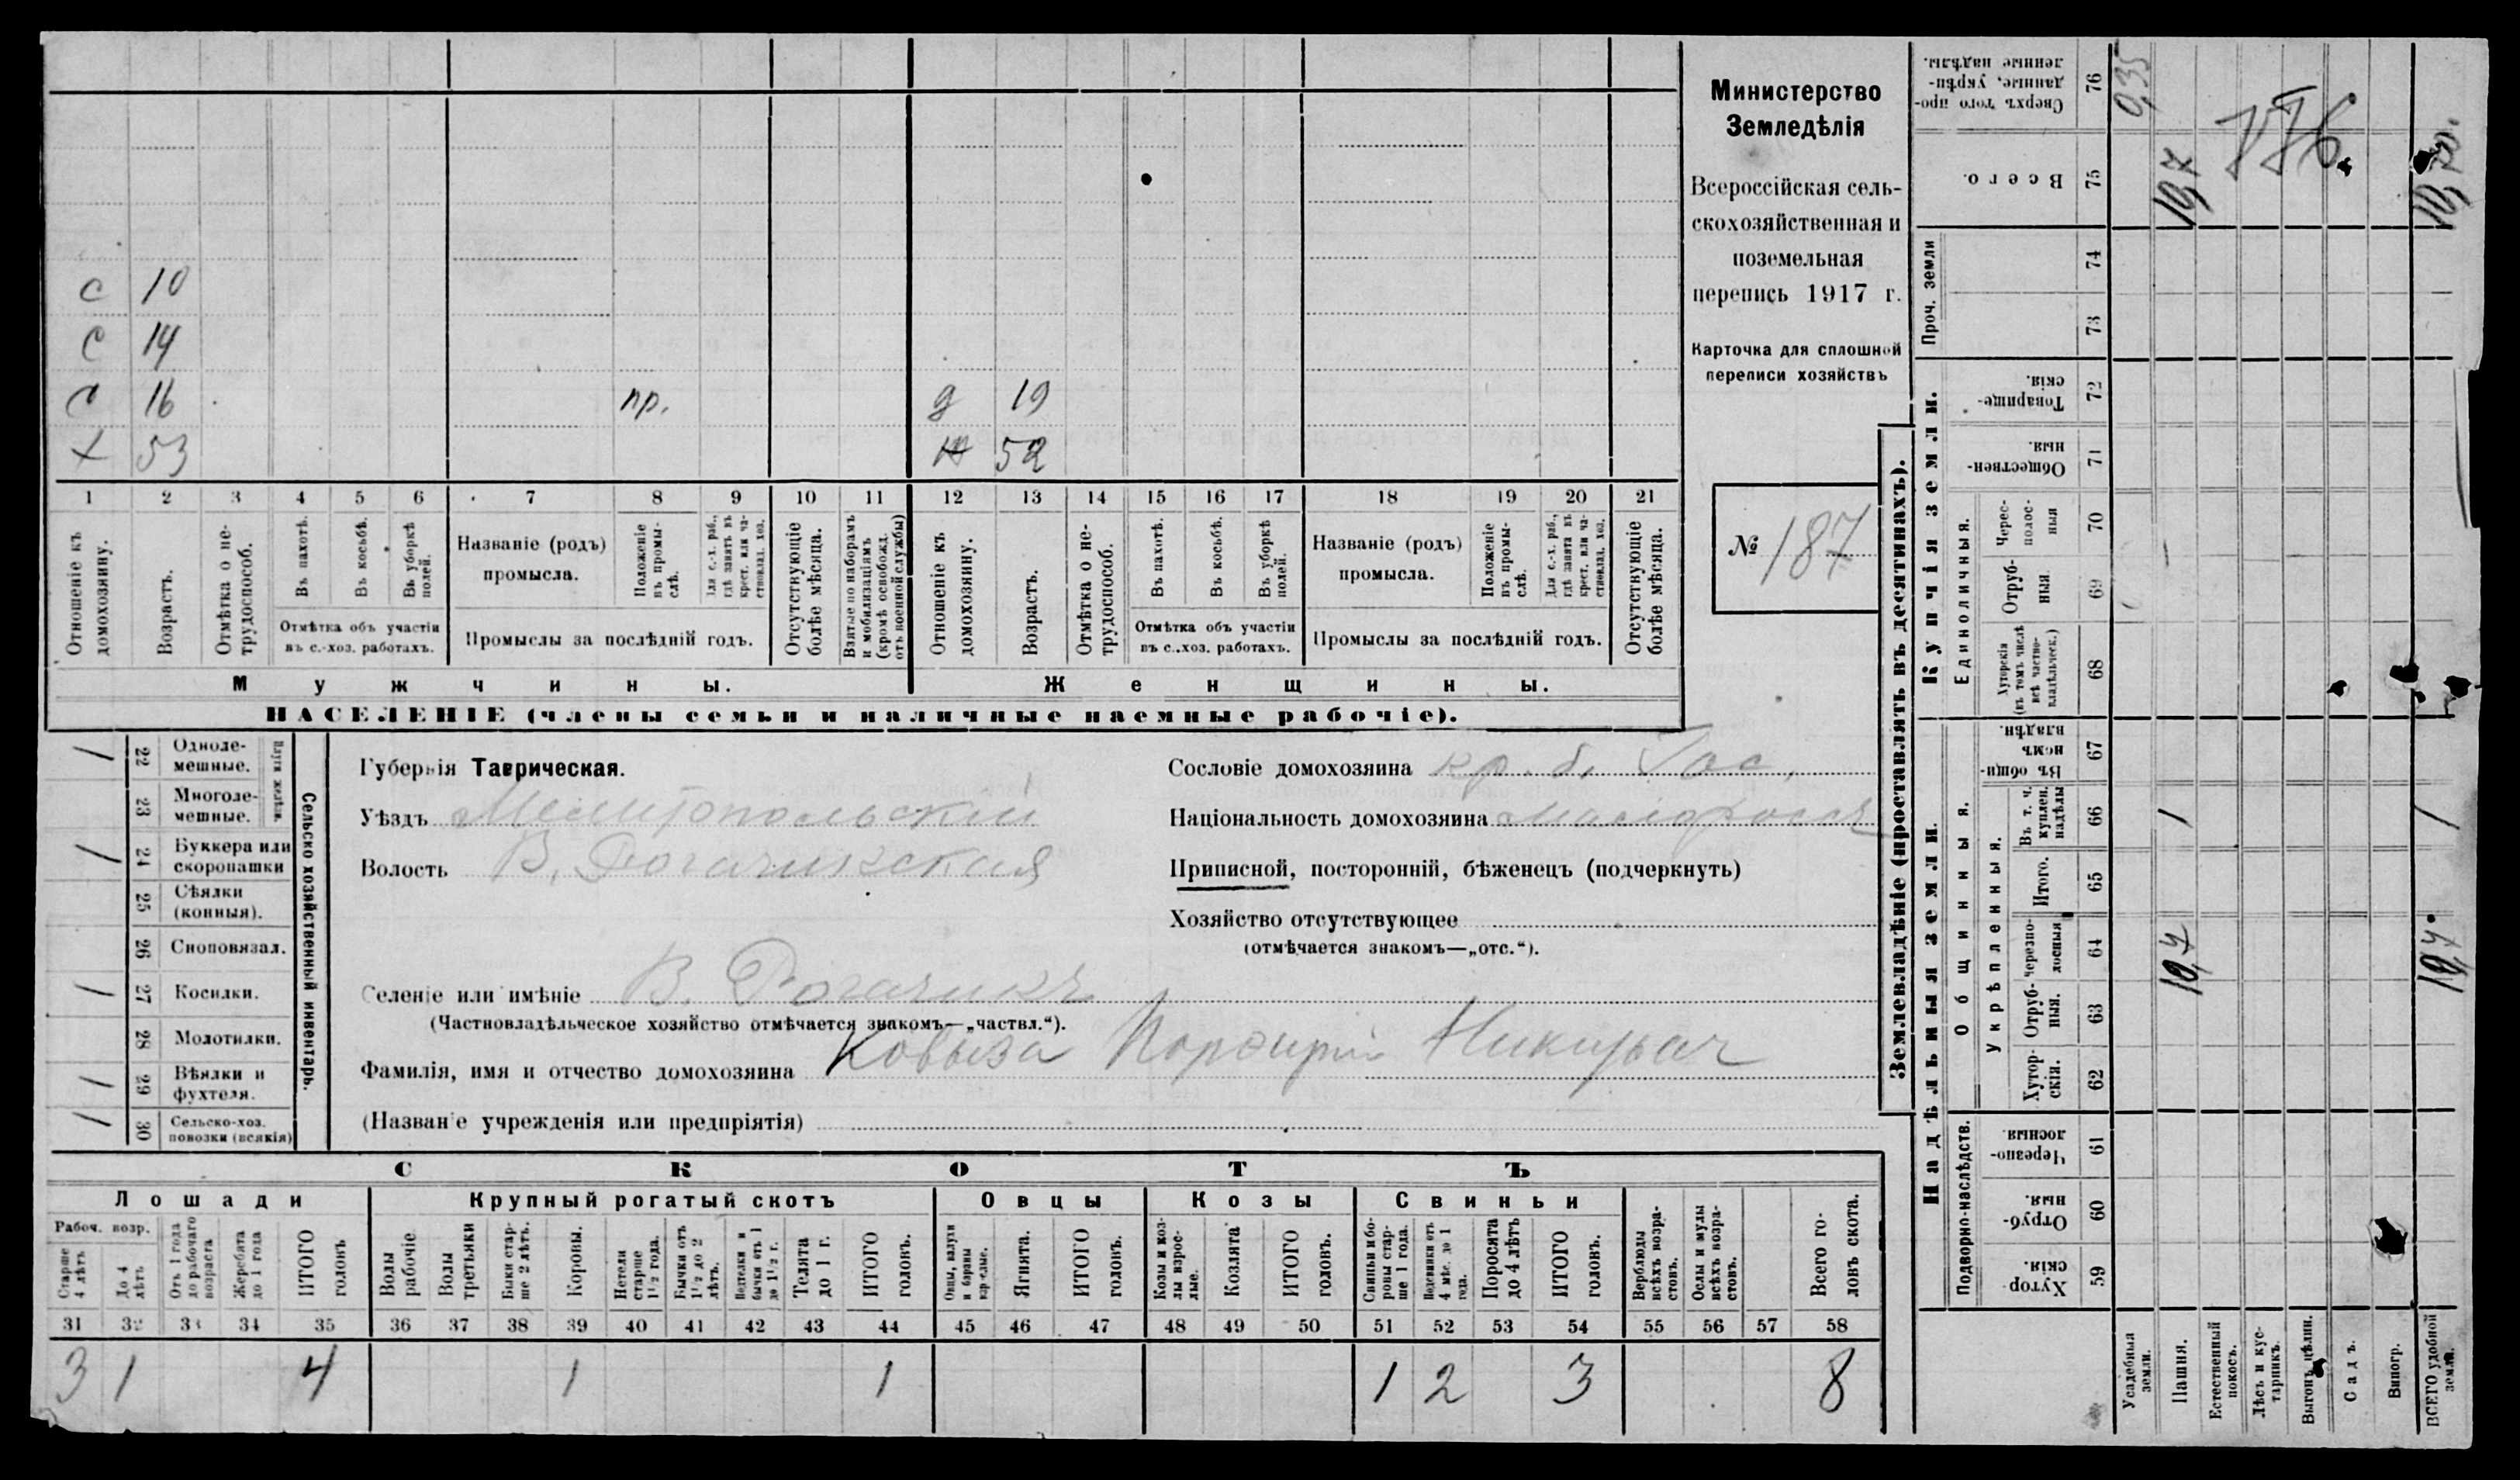 Министерство
Земледѣлія
Всероссійская сель-
скохозяйственная и
поземельная
перепись 1917 г.
Карточка для сплошной
переписи хозяйствъ
№ 187
с 10
с 14
с 16 пр. д 19
х 53 ж 52
1 2 3 4 5 6 7 8 9 10 11 12 13 14 15 16 17 18 19 20 21
Отношеніе къ домохозяину.
Возрастъ.
Отмѣтка о не-
трудоспособ.
Въ пахотѣ.
Въ косьбѣ.
Въ уборкѣ полей.
Отмѣтка объ участіи
въ с.-хоз. работахъ.
Названіе (родъ)
промысла.
Положеніе въ промы-
слѣ.
Для с.-х. раб., гдѣ занятъ въ крест. или ча-
стновлад. хоз.
Промыслы за послѣдній годъ.
Отсутствующіе болѣе мѣсяца.
Взятые по наборамъ и мобилизаціямъ (кромѣ освобожд. отъ военной службы)
Отношеніе къ домохозяину.
Возрастъ.
Отмѣтка о не-
трудоспособ.
Въ пахотѣ.
Въ косьбѣ.
Въ уборкѣ полей.
Отмѣтка объ участіи
въ с.-хоз. работахъ.
Названіе (родъ)
промысла.
Положеніе въ промы-
слѣ.
Для с.-х. раб., гдѣ занята въ крест. или ча-
стновлад. хоз.
Промыслы за послѣдній годъ.
Отсутствующіе болѣе мѣсяца.
Мужчины. Женщины.
НАСЕЛЕНІЕ (члены семьи и наличные наемные рабочіе).
Сельско хозяйственный инвентарь.
1 22 Одноле-
мешные.
23 Многоле-
мешные.
1 24 Буккера или
скоропашки
25 Сѣялки
(конныя).
26 Сноповязал.
1 27 Косилки.
28 Молотилки.
1 29 Вѣялки и
фухтеля.
1 30 Сельско-хоз.
повозки (всякія)
Губернія Таврическая.
Уѣздъ Мелитопольскій
Волость В. Рогачикская
Селеніе или имѣніе В. Рогачикъ
(Частновладѣльческое хозяйство отмѣчается знакомъ—„частвл.“).
Фамилія, имя и отчество домохозяина Ковыза Порфирій Никифрач
(Названіе учрежденія или предпріятія)
Сословіе домохозяина кр. б. Гос.
Національность домохозяина малороссъ
Приписной, посторонній, бѣженецъ (подчеркнуть)
Хозяйство отсутствующее
(отмѣчается знакомъ—„отс.“).
СКОТЪ
Лошади Крупный рогатый скотъ Овцы Козы Свиньи
Рабоч. возр.
Старше 4 лѣтъ
До 4 лѣтъ
Отъ 1 года до рабочаго возраста
Жеребята до 1 года
ИТОГО головъ
Волы рабочіе.
Волы третьяки
Быки стар-
ше 2 лѣтъ.
Коровы.
Нетели старше 1 1/2 года.
Бычки отъ 1 1/2 до 2 лѣтъ.
Нетелки и бычки отъ 1 до 1 1/2 г.
Телята до 1 г.
ИТОГО головъ.
Овцы, валухи и бараны взрослые.
Ягнята.
ИТОГО головъ.
Козы и коз-
лы взрос-
лые.
Козлята
ИТОГО головъ.
Свиньи и бо-
ровы стар-
ше 1 года.
Подсвинки отъ 4 мѣс. до 1 года.
Поросята до 4 лѣтъ
ИТОГО головъ.
Верблюды всѣхъ возра-
стовъ.
Ослы и мулы всѣхъ возра-
стовъ.
Всего го-
ловъ скота.
31 32 33 34 35 36 37 38 39 40 41 42 43 44 45 46 47 48 49 50 51 52 53 54 55 56 57 58
3 1 4 1 1 1 2 3 8
Землевладѣніе (проставлять въ десятинахъ).
Надѣльныя земли. Купчія земли. Проч. земли
Подворно-наслѣдств.
Общинныя.
Укрѣпленныя.
Единоличныя.
Хутор-
скія. 59
Отруб-
ныя. 60
Черезпо-
лосныя. 61
Хутор-
скія. 62
Отруб-
ныя. 63
Черезпо-
лосныя 64
Итого. 65
Въ т. ч. куплен. надѣлы 66
Въ общи-
номъ владѣн. 67
Хуторскія (въ томъ числѣ всѣ частно-
владѣльческ.) 68
Отруб-
ныя 69
Черес-
полос-
ныя 70
Обществен-
ныя. 71
Товарище-
скія. 72
73
74
Всего. 75
Сверхъ того про-
данные, укрѣп-
ленные надѣлы. 76
Усадебныя земли. 0,35
Пашня. 10,7 1 10,7
Естественный покосъ.
Лѣсъ и кус-
тарникъ.
Выгонъ, цѣлин.
Садъ.
Виногр.
ВСЕГО удобной земли. 10,7 1 10,70.